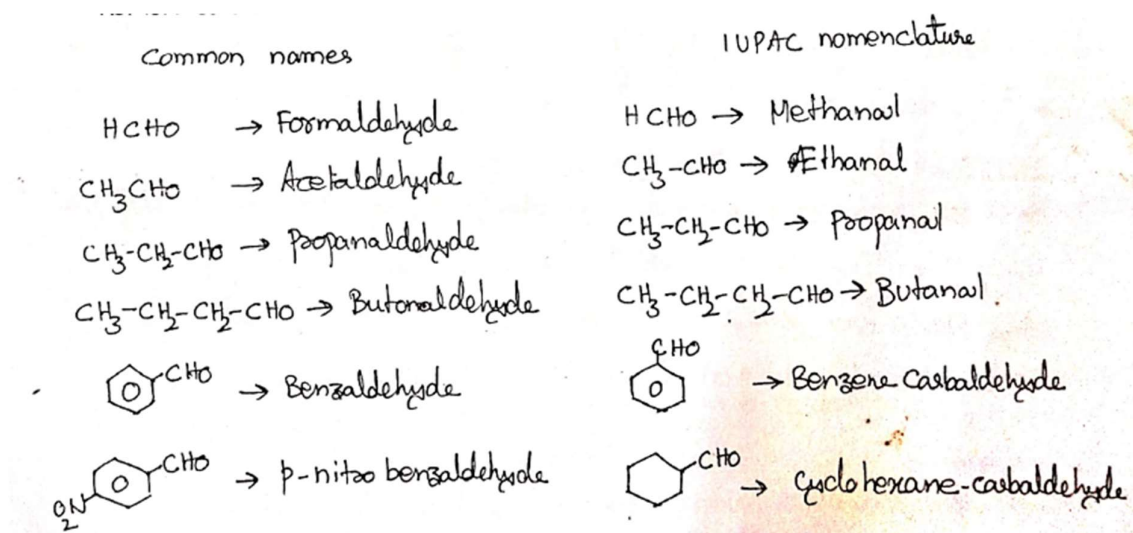 Common names
HCHO → Formaldehyde
CH3CHO → Acetaldehyde
CH3-CH2-CHO → Propanaldehyde
CH3-CH2-CH2-CHO → Butonaldehyde
CHO → Benzaldehyde
O2N CHO → p-nitro benzaldehyde
IUPAC nomenclature
HCHO → Methanal
CH3-CHO → Ethanal
CH3-CH2-CHO → Propanal
CH3-CH2-CH2-CHO → Butanal.
CHO
→ Benzene Carbaldehyde
CHO → Cyclohexane-carbaldehyde